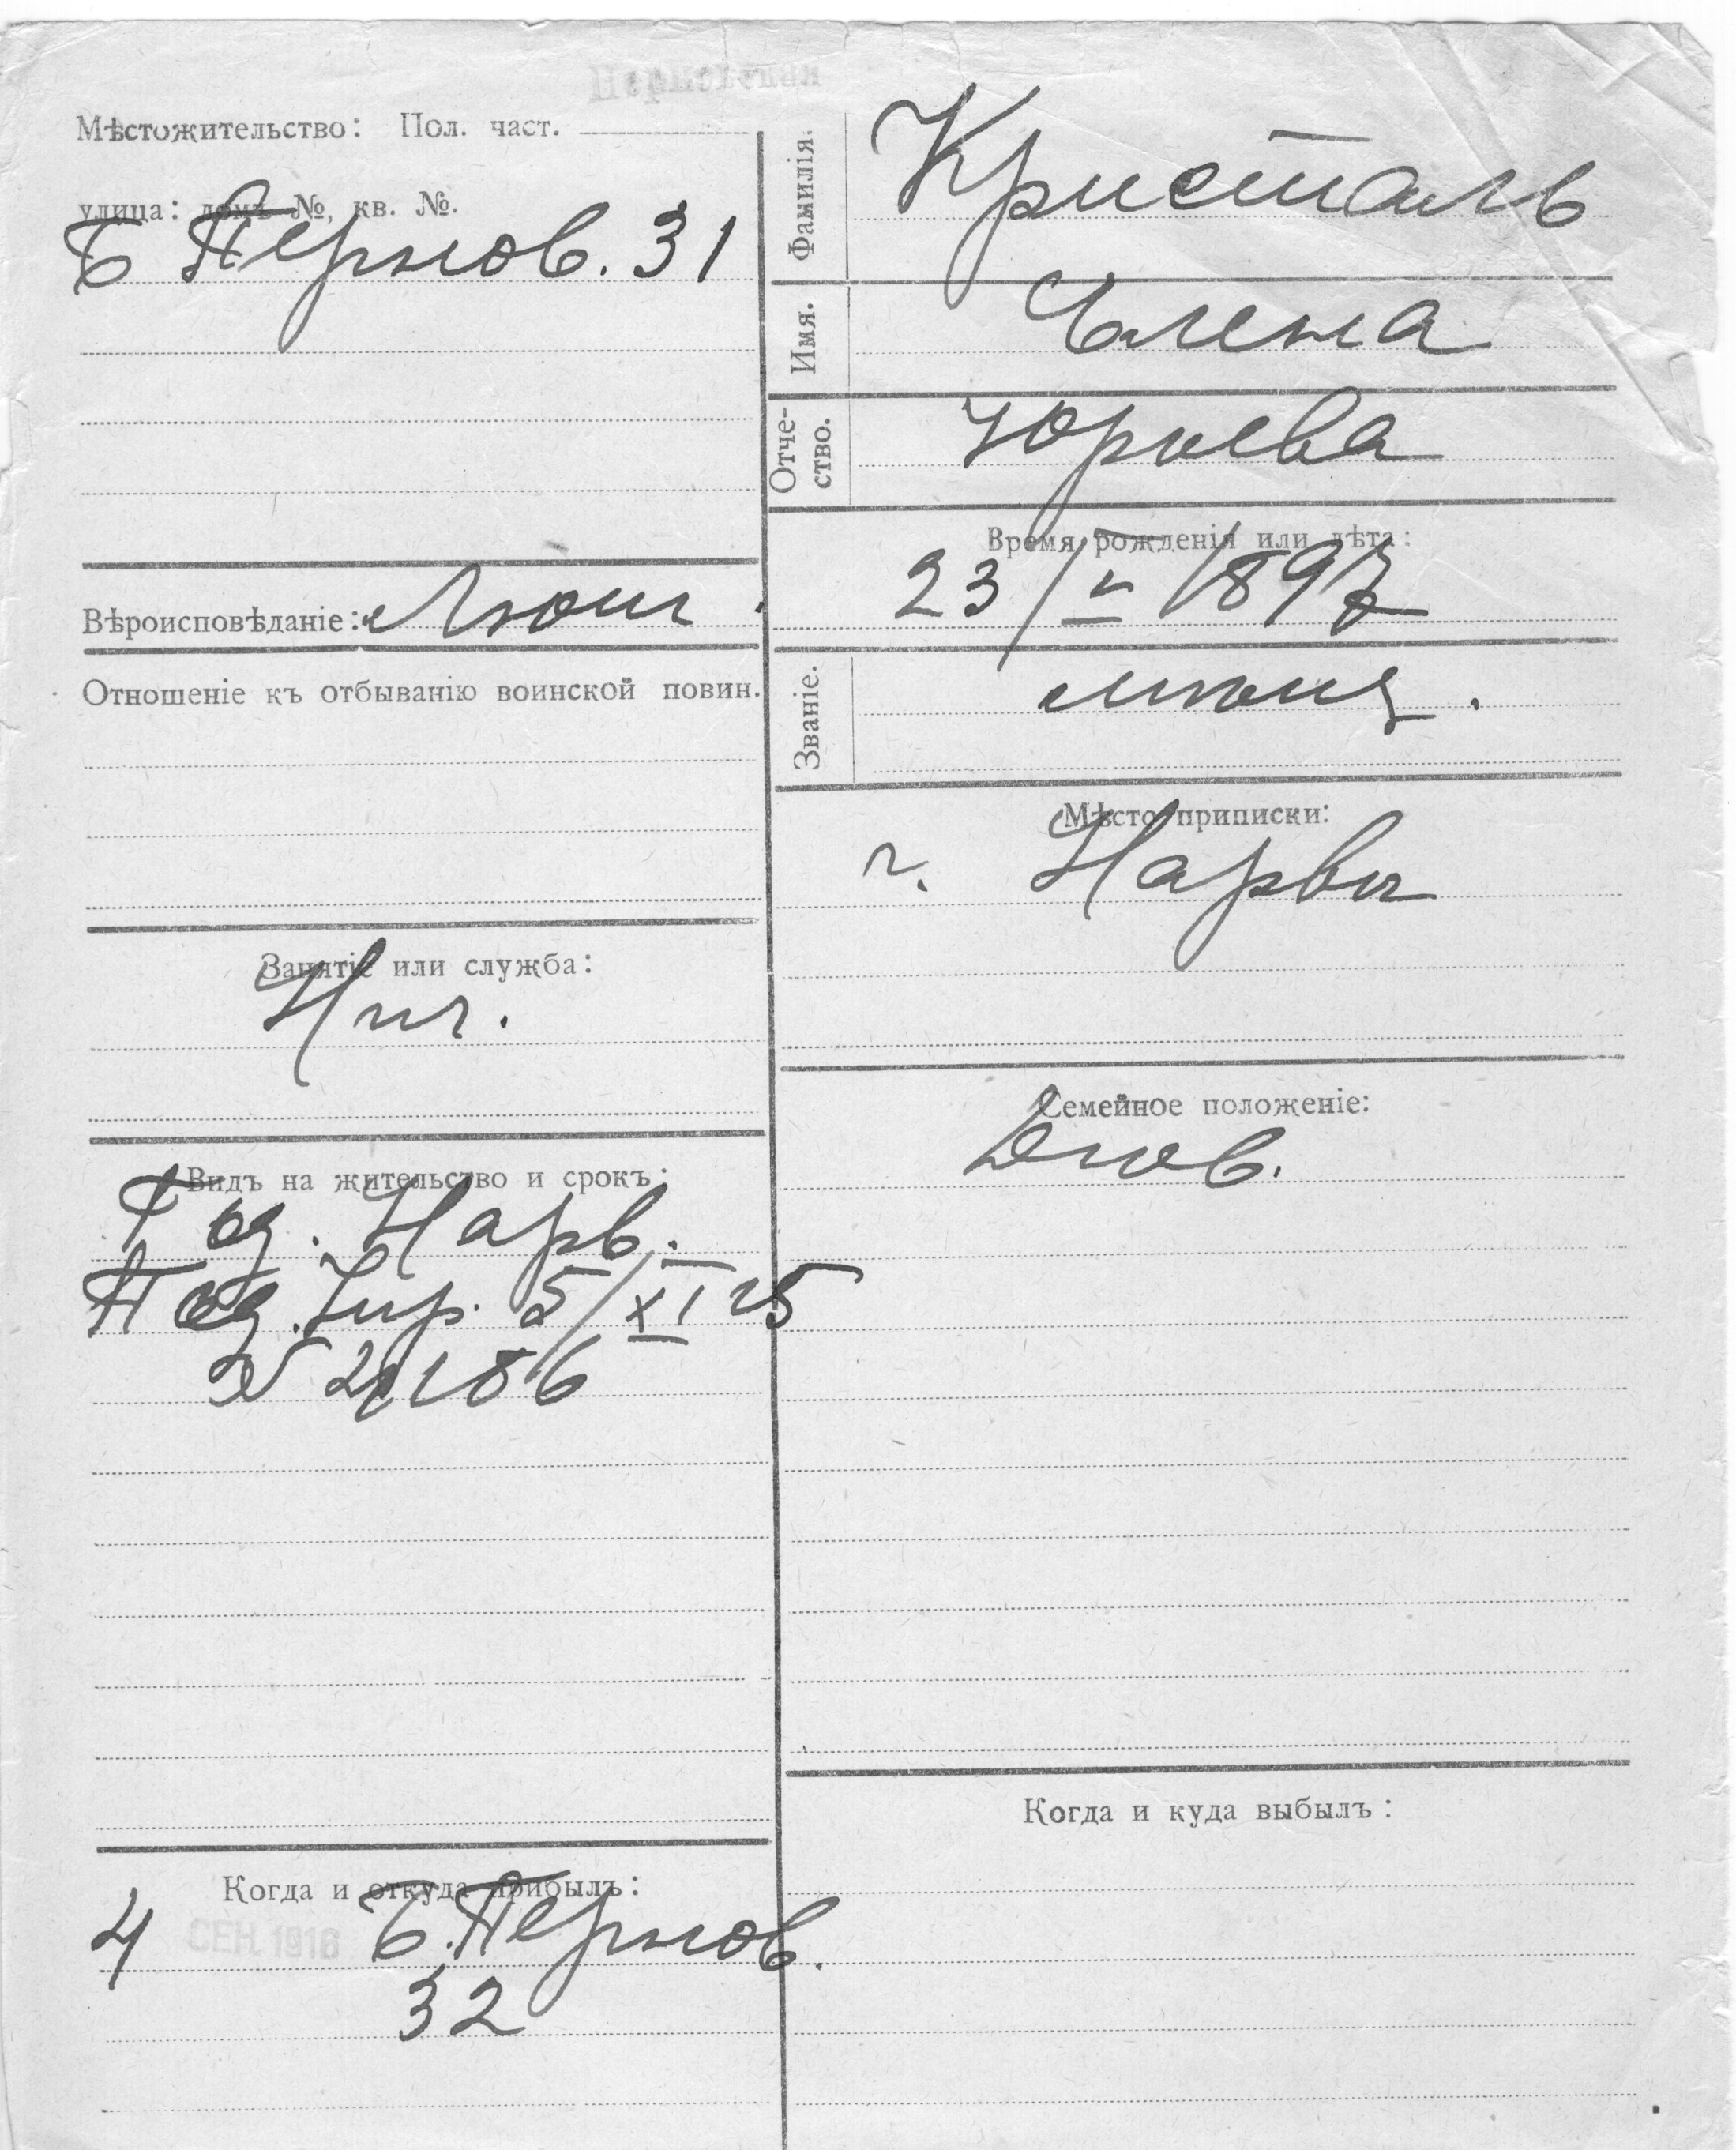 Мѣстожительство: Пол. част.
улица: домъ №, кв. №.
Б Пернов. 31
Вѣроисповѣданіе: Лют.
Отношеніе къ отбыванію воинской повин.
Занятіе или служба:
Нич.
Видъ на жительство и срокъ:
Гор. Нарв.
5/XI 15
№ 21186
Когда и откуда прибылъ:
4 СЕН. 1916 Б. Пернов.
32
Фамилія. Кристаль
Имя. Елена
Отче-
ство. Юрьева
Время рожденія или лѣта:
23/V 1897
Званіе. мѣщ.
Мѣсто приписки:
г. Нарвы
Семейное положеніе:
Когда и куда выбылъ: